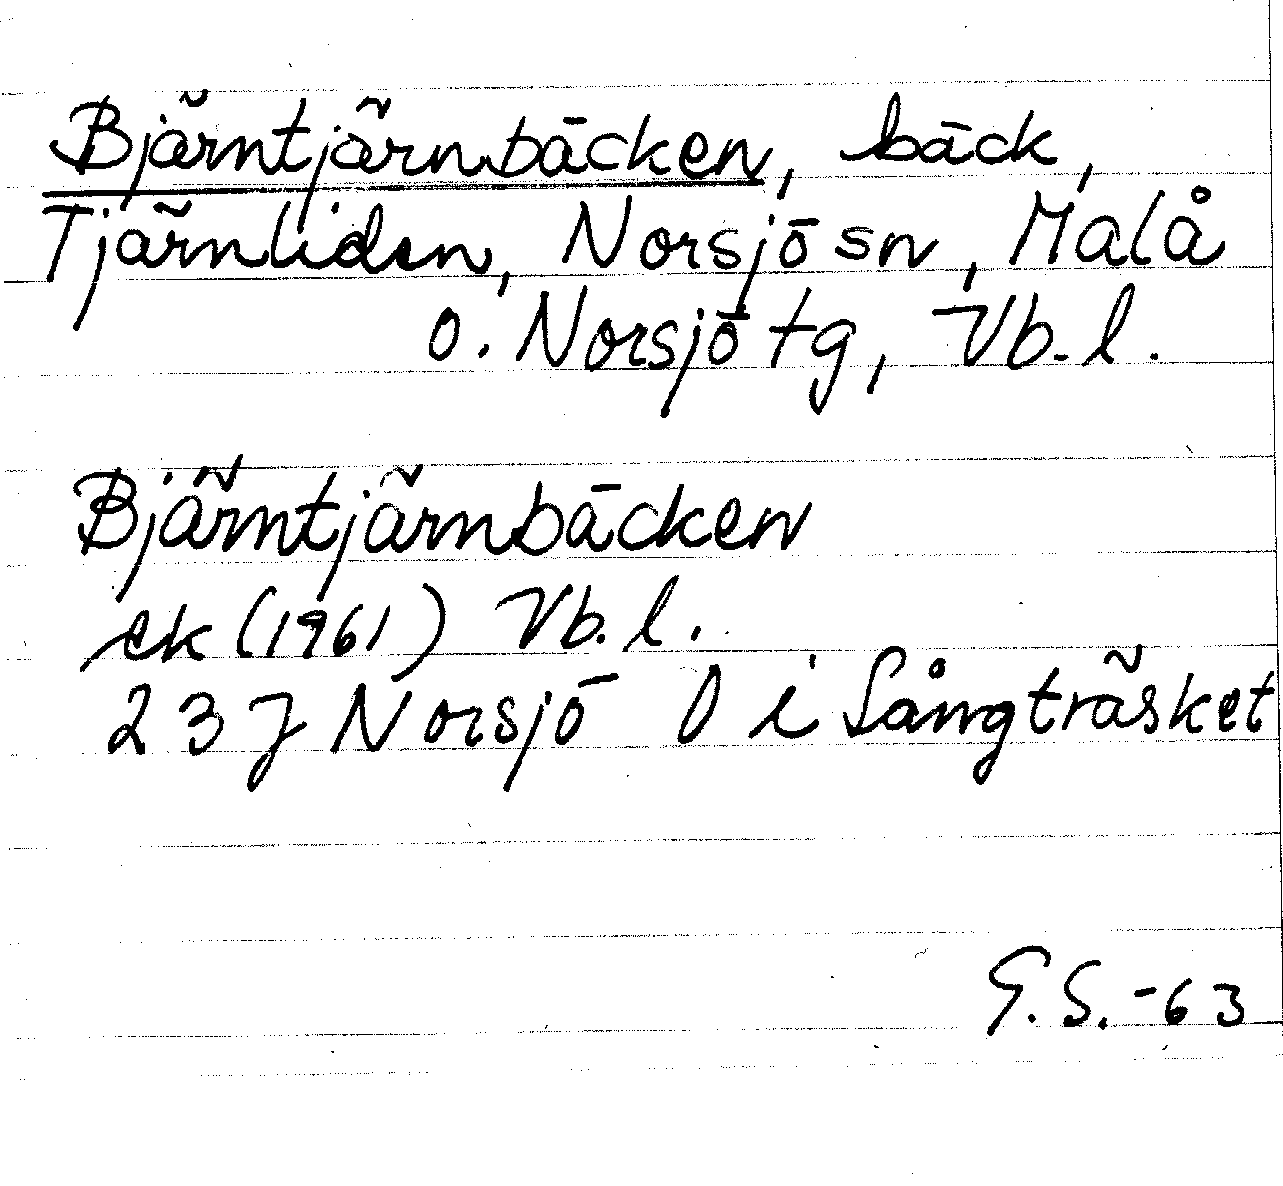 Bjärntjärnbäcken, bäck,
Tjärnliden, Norsjö sn, Malå
o. Norsjö tg, Vb. l.
Bjärntjärnbäcken
ek (1961) Vb. l.
23 J Norsjö O i Långträsket
G.S. -63